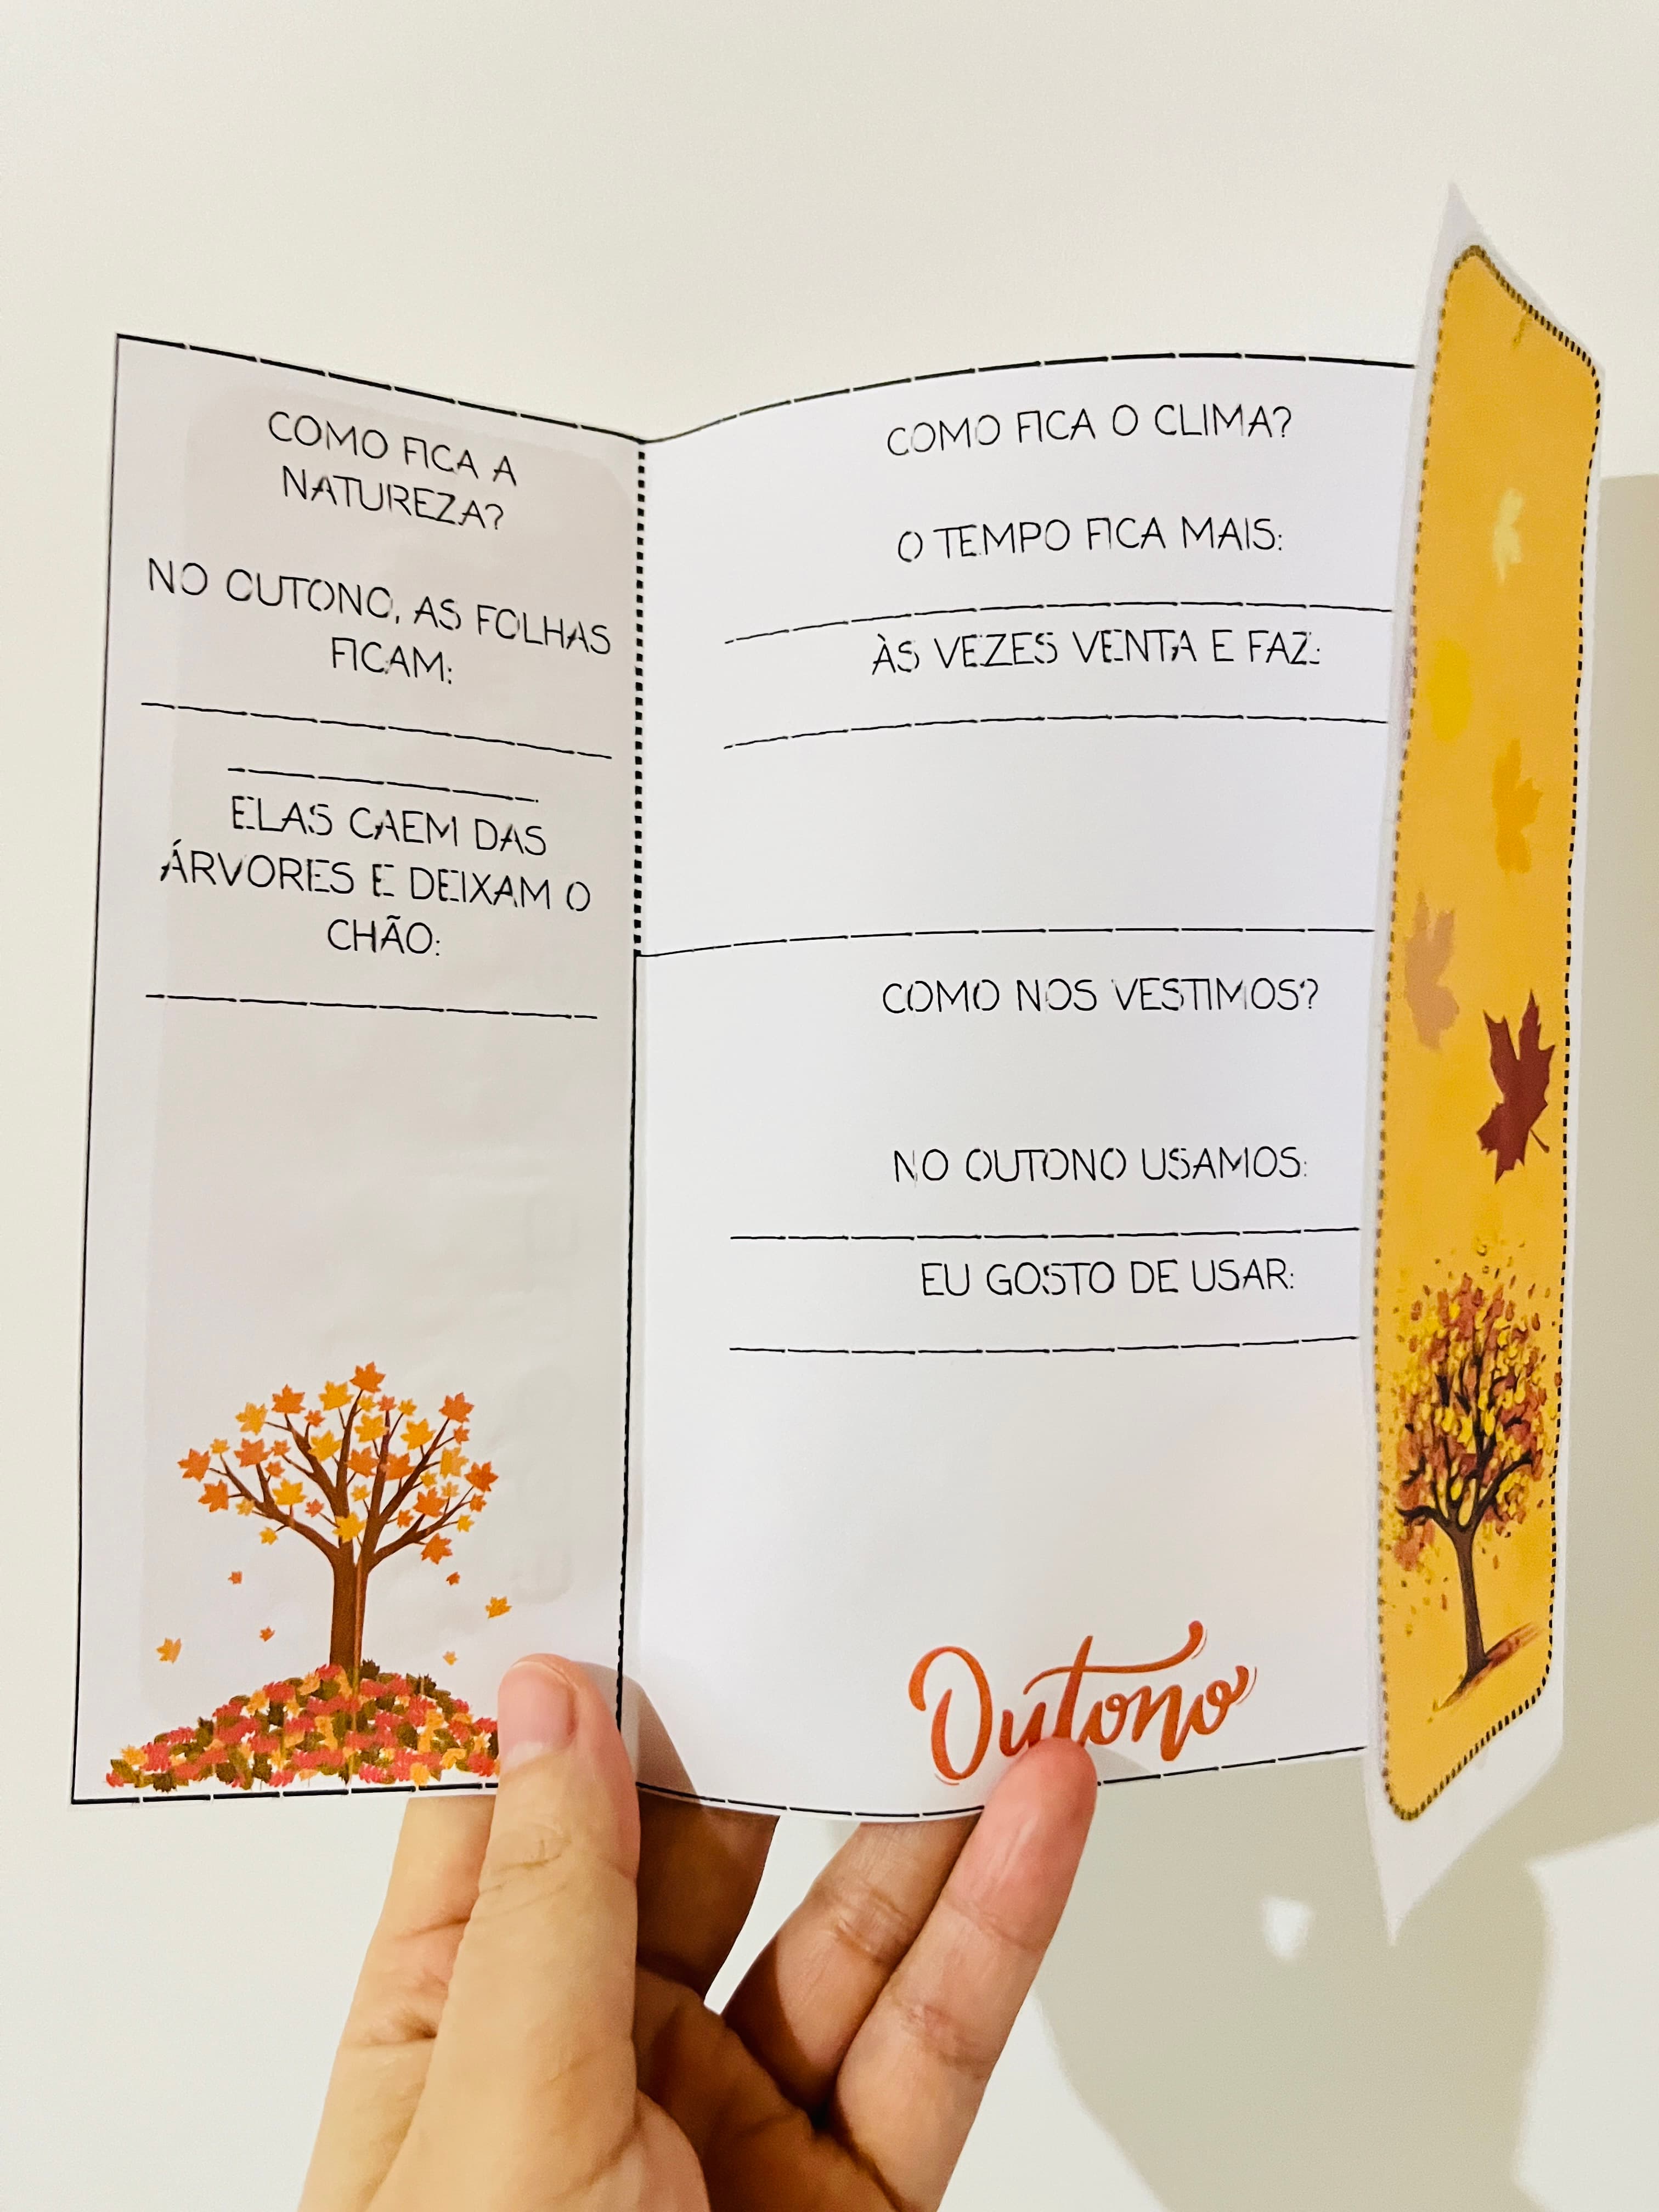 COMO FICA A
NATUREZA?
NO OUTONO, AS FOLHAS
FICAM:
ELAS CAEM DAS
ÁRVORES E DEIXAM O
CHÃO:
COMO FICA O CLIMA?
O TEMPO FICA MAIS:
ÀS VEZES VENTA E FAZ:
COMO NOS VESTIMOS?
NO OUTONO USAMOS:
EU GOSTO DE USAR:
Outono